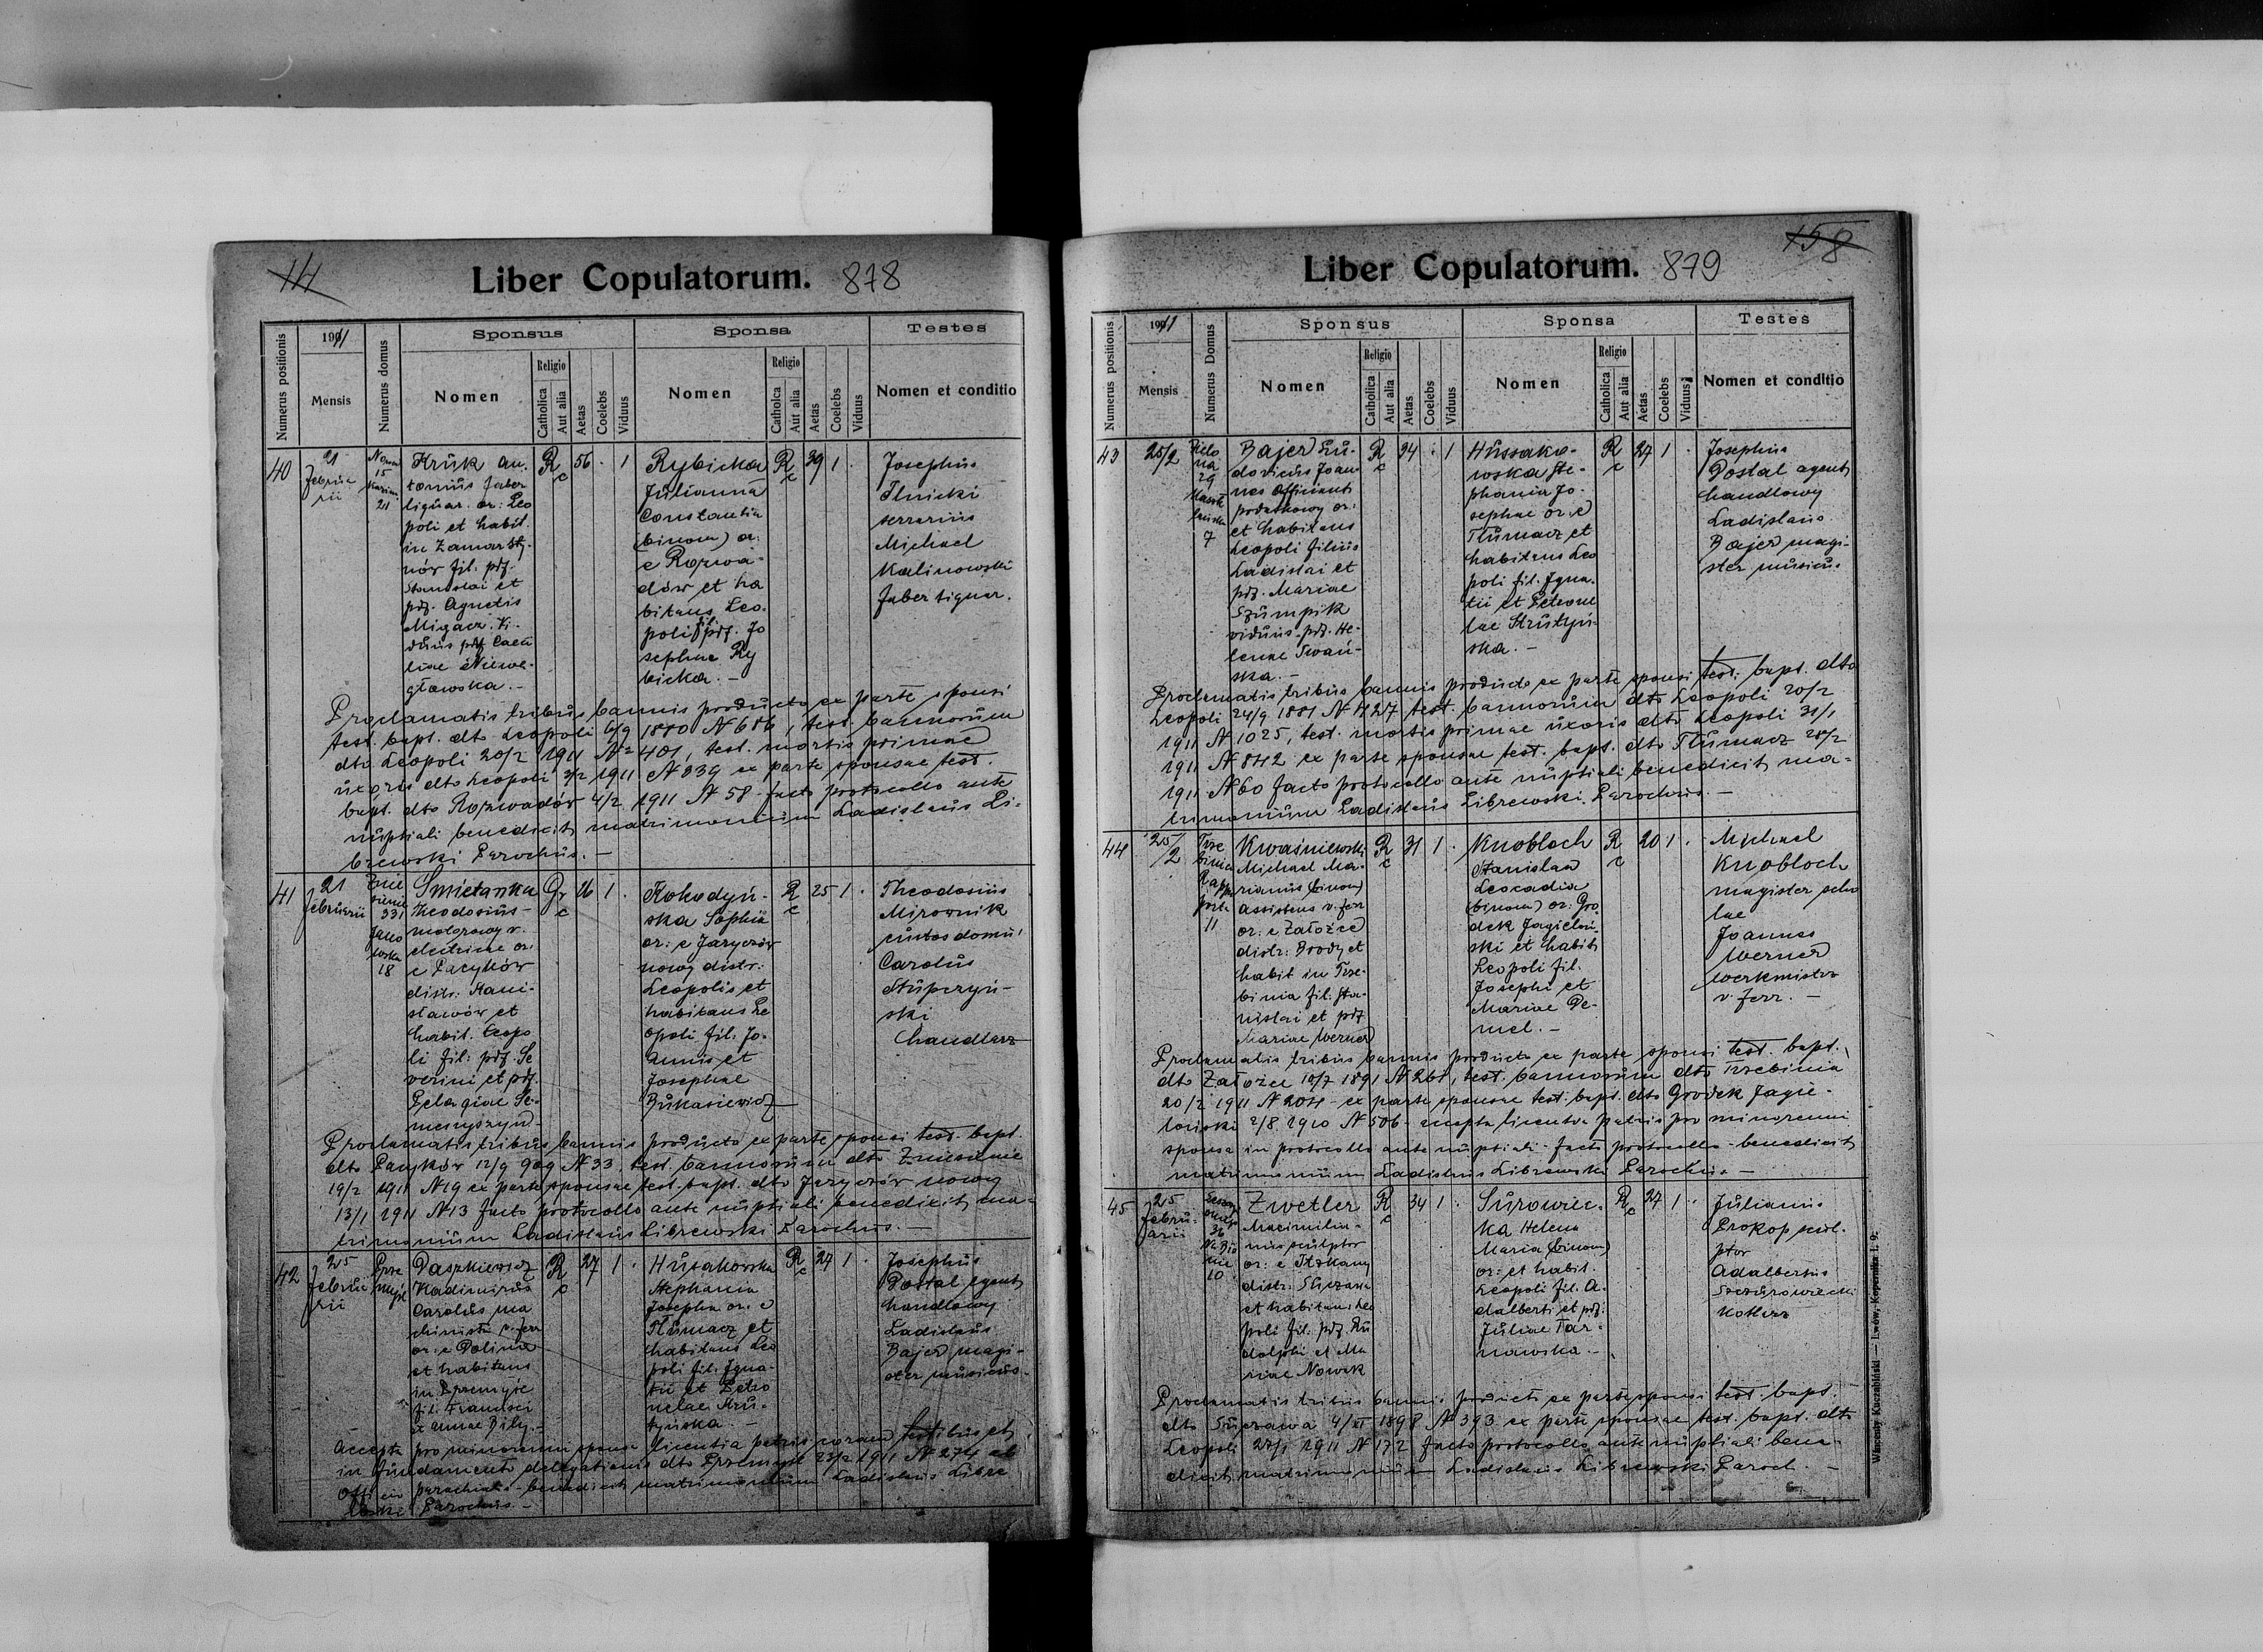 14
Liber Copulatorum. 878
Numerus positionis
1911
Mensis
Numerus domus
Sponsus
Nomen
Religio
Catholca
Aut alia
Aetas
Coelebs
Viduus
Sponsa
Nomen
Religio
Catholca
Aut alia
Aetas
Coelebs
Viduus
Testes
Nomen et conditio
40
21
Februa
rii
15
21
Kruk An-
tonius faber
lignar. or: Leo
poli et habit.
in Zamarsty-
nów fil: pdf.
Stanislai et
pdf. Agnetis
Migacz. Vi-
duus pdf Caeci
liae Niewę-
głowska.-
R
c
56 . 1
Rybicka
Julianna
Constantia
(binom) or.
e Rozwa-
dów et ha
bitans Leo-
poli fil. pdf. Jo
sephae Ry
bicka. -
R
c
39 1 .
Josephus
Ilnicki
serrarius
Michael
Kalinowski
faber lignar.
Proclamatis tribus bannis producto ex parte sponsi
test. bapt. dto Leopoli 6/9 1880 N 686, test. bannorum
dto Leopoli 20/2 1911 N= 401, test. mortis primae
uxoris dto Leopoli 3/2 1911 N 339 ex parte sponsae test.
bapt. dto Rozwadów 4/2 1911 N 58 - facto protocollo ante
nuptiali benedicit matrimonium Ladislaus Li-
brewski Parochus. -
41
21
Februarii
Znie
sienie
331
Jano
wska
18
Smietanka
Theodosius -
motorowy v.
electricae or:
e Pacyków
distr: Stani-
sławów et
habit. Leopo
li fil: pdf. Se
verini et pdf.
Pelagiae Se-
meryszyn -
Gr
c
26 1 .
Kohodyń-
ska Sophia
or: e Jaryczów
nowy distr:
Leopolis et
habitans Le
opoli fil. Jo-
annis et
Josephae
Bukasiewicz
R
c
25 1 .
Theodosius
Mirownik
custos domus
Carolus
Stupczyń-
ski
handlarz
Proclamatis tribus bannis producto ex parte sponsi test. bapt.
dto Pacyków 12/9 909 N 33, test. bannorum dto Zniesienie
19/2 1911 N 19 ex parte sponsae test. bapt. dto Jaryczów nowy
13/1 1911 N 13 facto protocollo ante nuptiali benedicit ma-
trimonium Ladislaus Librewski Parochus. -
42
25
Februa
rii
Prze
myśl
Daszkiewicz
Vladimirus
Carolus ma
chinista v. ferr
or: e Dolina
et habitans
in Przemyśl
fil. Francisci
et Annae Bily.-
R
c
27 1 .
Husakowska
Stephania
Josepha or. e
Tłumacz et
habitans Leo
poli fil. Igna-
tii et Petro
nelae Kru-
tyńska. -
R
c
27 1 .
Josephus
Postal agent
handlowy
Ladislaus
Bajer magi-
ster musicus.
Accepta pro minorenni sponsa licentia patris coram testibus et
in fundamento delegationis dto Przemyśl 23/2 1911 N 274 ab
Officio parochiali - benedicit matrimonium Ladislaus Libre
wski Parochus -
158
Liber Copulatorum. 879
Numerus positionis
1911
Mensis
Numerus Domus
Sponsus
Nomen
Religio
Catholica
Aut alia
Aetas
Coelebs
Viduus
Sponsa
Nomen
Religio
Catholica
Aut alia
Aetas
Coelebs
Viduus
Testes
Nomen et conditio
43
25/2
Zielo
na
29
7
Bajer Lu-
dovicus Joan
nes officiant
podatkowy or:
et habitans
Leopoli filius
Ladislai et
pdf. Mariae
Szumpik
viduus. pdf. He-
lenae Iwań-
ska. -
R
c
34 . 1
Hussako-
wska Ste-
phania Jo-
sephae or. e
Tłumacz et
habitans Leo
poli fil. Igna-
tii et Petronel
lae Krutyń
ska. -
R
c
27 1 .
Josephus
Postal agent
handlowy
Ladislaus
Bajer magi-
ster musicus
Proclamatis tribus bannis producto ex parte sponsi test. bapt. dto
Leopoli 24/9 1881 N 427 test. bannorum dto Leopoli 20/2
1911 N 1025, test. mortis primae uxoris dto Leopoli 31/1
1911 N 842 ex parte sponsae test. bapt. dto Tłumacz 20/2
1911 N 60 facto protocollo ante nuptiali benedicit ma-
trimonium Ladislaus Librewski Parochus. -
44
25
/2
Trze
binia
11
Kwaśniewski
Michael Ma-
rianus (binom)
assistens v. ferr
or: e Załoźce
distr: Brody et
habit in Trze-
binia fil. Sta-
nislai et pdf
Mariae Werner
R
c
31 1 .
Knobloch
Stanislaa
Leocadia
(binom) or: Gro
dek Jagielloń
ski et habit
Leopoli fil.
Josephi et
Mariae De-
mel. -
R
c
20 1 .
Michael
Knobloch
magister scho
lae
Joannes
Werner
werkmistrz
v. ferr. -
Proclamatis tribus bannis producto ex parte sponsi test. bapt.
dto Załoźce 10/7 1891 N 261, test. bannorum dto Trzebinia
20/2 1911 N 204 - ex parte sponsae test. bapt. dto Grodek Jagie-
loński 2/8 1910 N 506 - accepta licentia patris pro minorenni
sponsa in protocollo ante nuptiali - facto protocollo - benedicit
matrimonium Ladislaus Librewski Parochus -
45
25
Febru-
arii
36
10
Zwetler
Maximilia-
nus sculptor
or: e Itzkany
distr: Suczawa
et habitans Leo
poli fil. pdf. Ru
dolphi et Ma
riae Nowak
R
c
34 1 .
Surowiec-
ka Helena
Maria (binom)
or: et habit.
Leopoli fil. A-
dalberti et pdf.
Juliae Tar-
nawska. -
R
c
27 1 .
Julianus
Prokop scul-
ptor
Adalbertus
Szczurowiecki
kotlarz
Proclamatis tribus bannis producto ex parte sponsi test. bapt.
dto Suczawa 4/XI 1898 N 393 ex parte sponsae test. bapt. dto
Leopoli 27/1 1911 N 172 facto protocollo ante nuptiali bene-
dicit matrimonium Ladislaus Librewski Paroch. -
Wincenty Kuczabiński — Lwów, Kopernika l. 9.